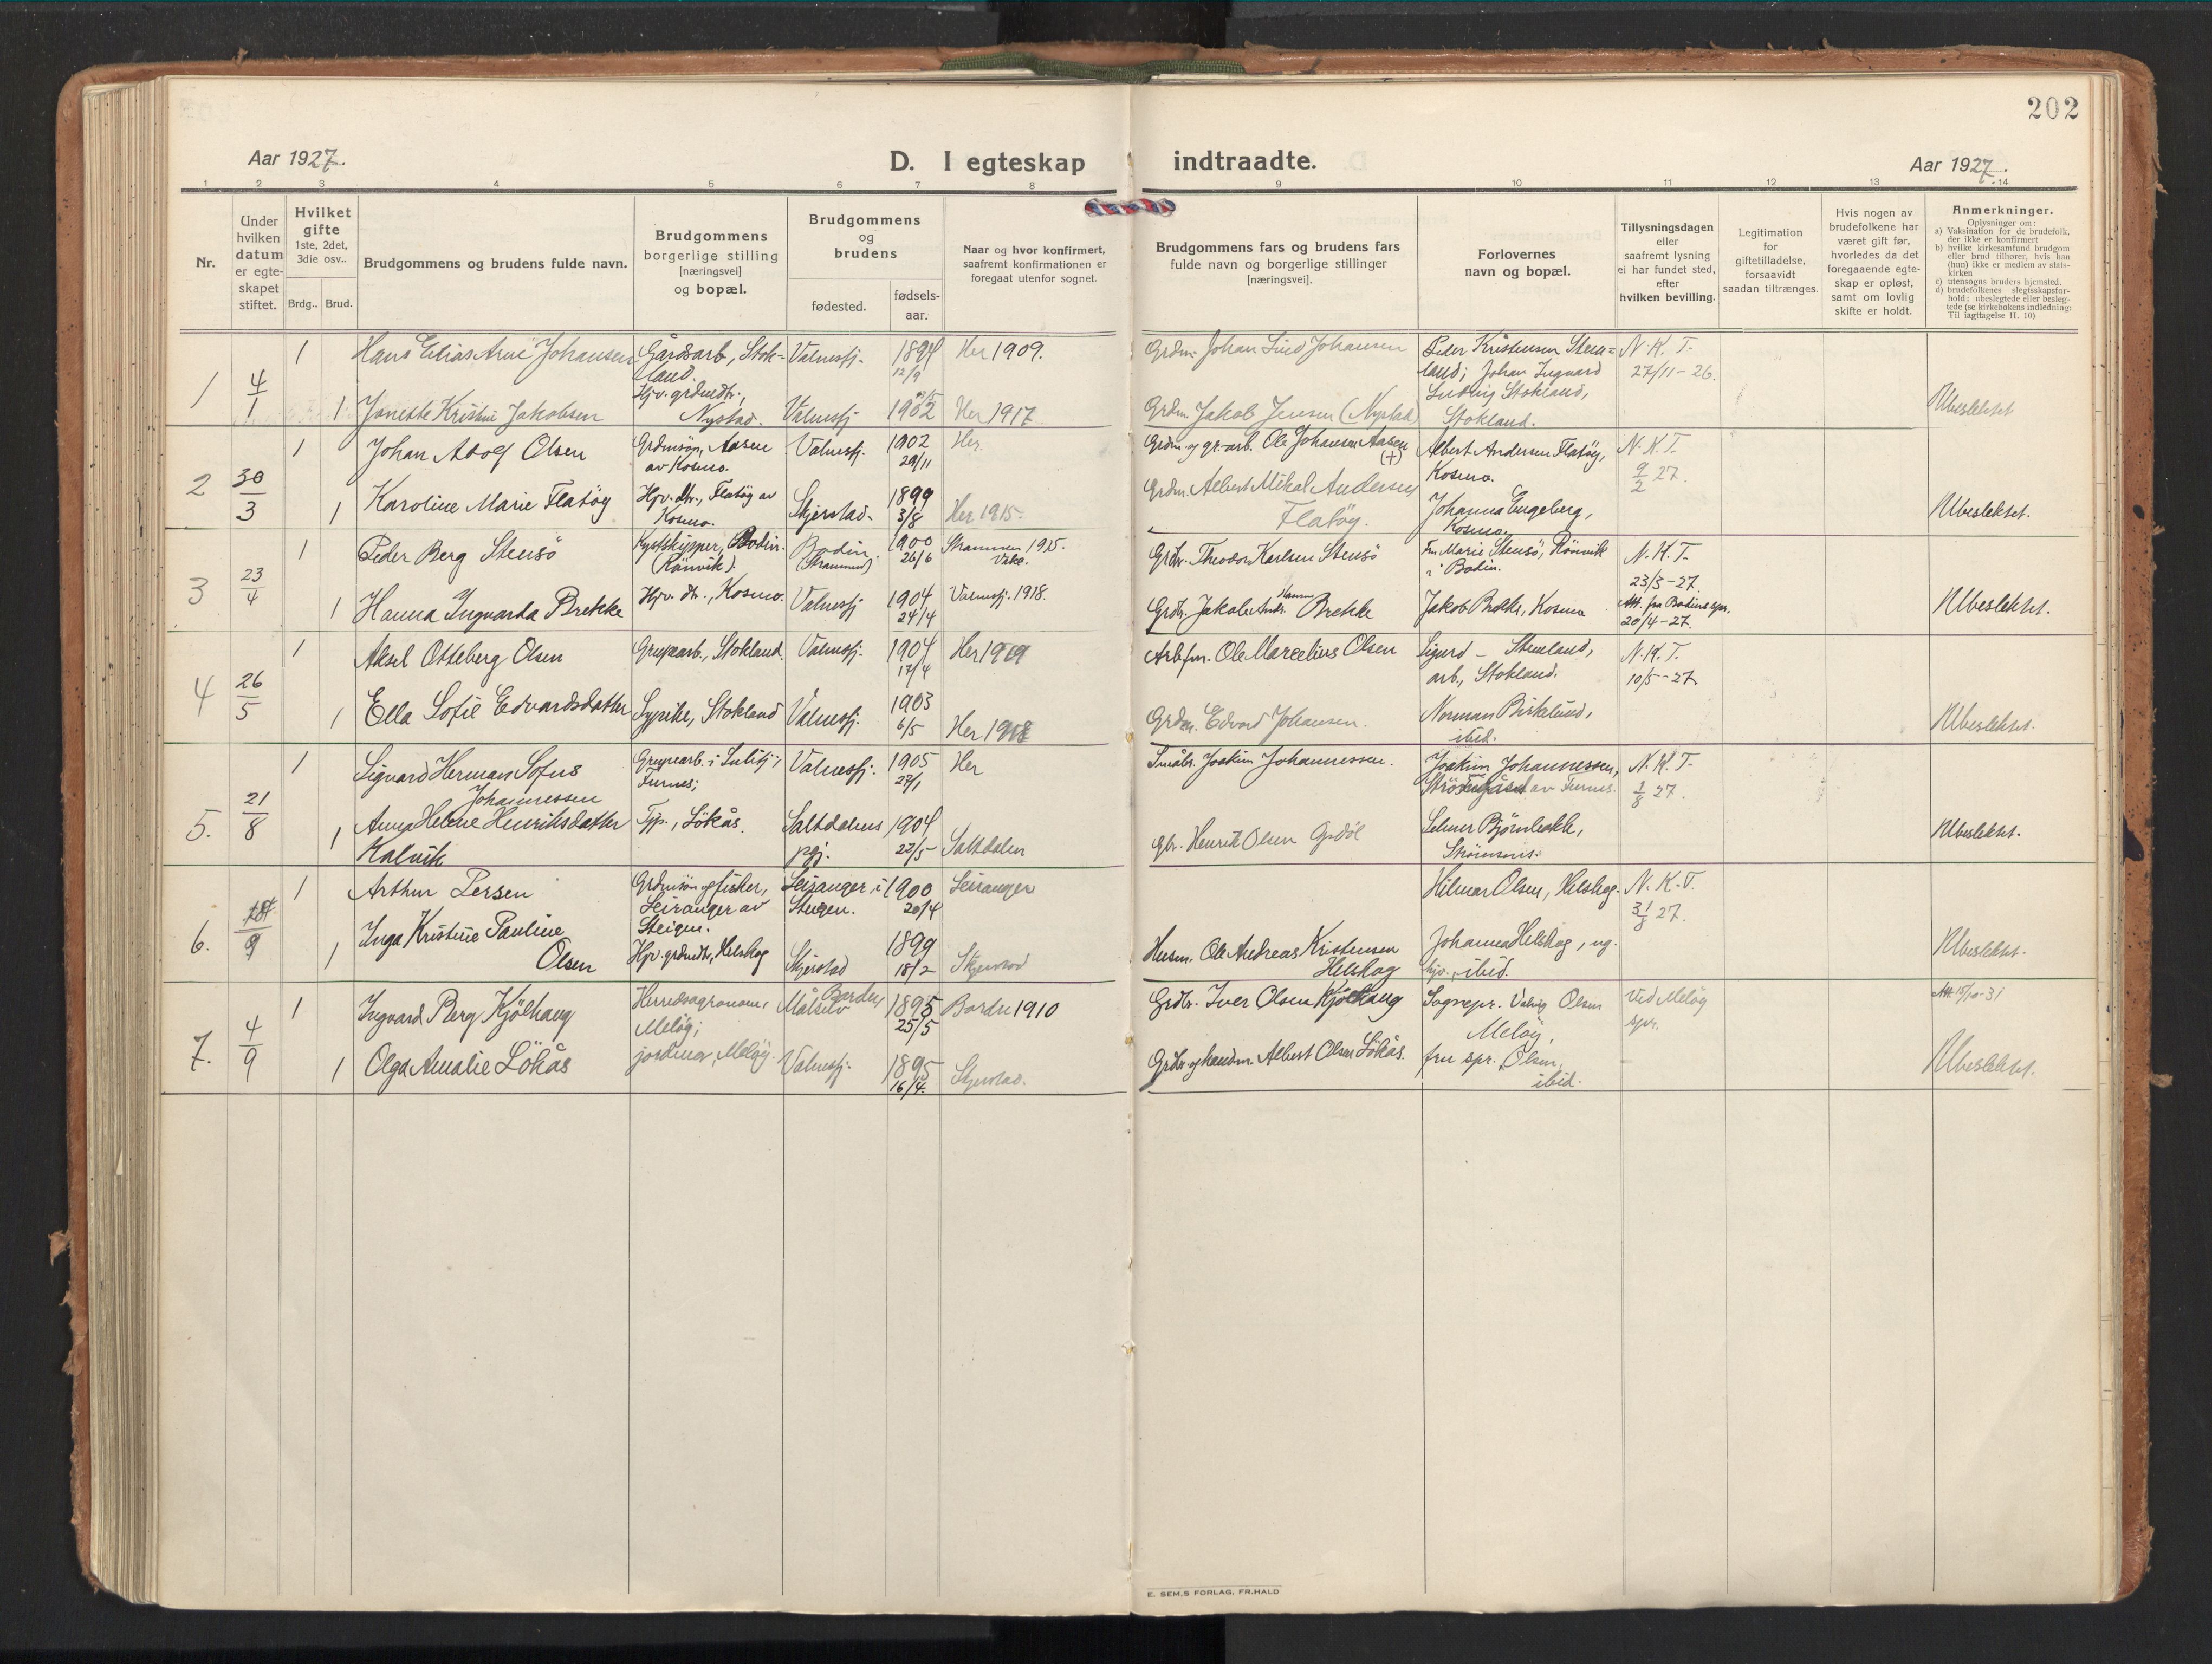 202
Aar 1927.
D. I egteskap indtraadte.
Aar 1927.
1 2 3 4 5 6 7 8 9 10 11 12 13 14
Nr.
Under hvilken datum er egte-skapet stiftet.
Hvilket gifte 1ste, 2det, 3die osv..
Brdg.. Brud.
Brudgommens og brudens fulde navn.
Brudgommens borgerlige stilling [næringsvei] og bopæl.
Brudgommens og brudens
fødested.
fødsels-aar.
Naar og hvor konfirmert, saafremt konfirmationen er foregaat utenfor sognet.
Brudgommens fars og brudens fars fulde navn og borgerlige stillinger [næringsvei].
Forlovernes navn og bopæl.
Tillysningsdagen eller saafremt lysning ei har fundet sted, efter hvilken bevilling.
Legitimation for giftetilladelse, forsaavidt saadan tiltrænges.
Hvis nogen av brudefolkene har været gift før, hvorledes da det foregaaende egte-skap er opløst, samt om lovlig skifte er holdt.
Anmerkninger.
Oplysninger om:
a) Vaksination for de brudefolk, der ikke er konfirmert
b) hvilke kirkesamfund brudgom eller brud tilhører, hvis han (hun) ikke er medlem av stats-kirken
c) utensogns bruders hjemsted.
d) brudefolkenes slegtsskapsfor-hold: ubeslegtede eller besleg-tede (se kirkebokens indledning: Til iagttagelse II. 10)
1 4/1
1 Hans Elias Arne Johansen Gårdsarb, Stok-land. Valnesfj. 1894 12/9 Her 1909. Grdm. Johan Lind Johansen
Peder Kristensen Stok-land; Johan Ingvard Ludvig Stokland, Stokland.
N. K. T. 27/11-26.
1 Janette Kristine Jakobsen Hjv. grdmdtr., Nystad. Valnesfj 1902 Her 1917 Grdm. Jakob Jensen (Nystad)
Ubeslektet
2 30/3
1 Johan Adolf Olsen Grdmsøn, Aasen av Kosmo. Valnesfj. 1902 20/11 Her. Grdm. og gr.arb. Ole Johansen Aasen (+)
Albert Andersen Flatøy, Kosmo.
N. K. T. 9/2 27.
1 Karoline Marie Flatöy Hjv. dtr., Flatöy av Kosmo. Skjerstad. 1899 3/8 Her 1915. Grdm. Albert Mikal Andersen Flatöy.
Johanna Engeberg, Kosmo.
Ubeslektet.
3 23/4
1 Peder Berg Stensö Kystskipper, Bodin. (Rönvik). Bodin. 1900 26/6 Strammen 1915. Grdbr. Theodor Karlsen Stensö
Fru Marie Stensö, Rönvik i Bodin.
N. K. T. 23/3-27.
1 Hanna Ingvarda Brekke Hjv. dtr., Kosmo. Valnesfj 1904 24/4 Valnesfj. 1918. Grdbr. Jakob Andr. Hansen Brekke
Jakob Brekke, Kosmo
Att. fra Bodins spr. 20/4-27.
Ubeslektet.
4 26/5
1 Aksel Otteberg Olsen Grupearb., Stokland. Valnesfj. 1904 17/4 Her 1919 Arb.fm. Ole Marcelius Olsen
Sigurd – Stenland, arb., Stokland.
N. K. T. 10/5-27.
1 Ella Sofie Edvardsdatter Sypike, Stokland Valnesfj. 1903 6/5 Her 1918 Grdm. Edvard Johansen.
Norman Birkelund, ibid.
Ubeslektet.
5. 21/8
1 Sigvard Herman Sofus Johannessen Grupearb. i Sulitj., Furnes; Valnesfj. 1905 27/1 Her Småbr. Joakim Johannessen.
Joakim Johannessen, av Furnes.
N. K. T. 1/8 27.
1 Anna Helene Henriksdatter Kalvik Tjp., Lökås. Saltdalens pgj. 1904 22/5 Saltdalen Gbr. Henrik Olsen
Selmer Björnbakk,
Ubeslektet.
6. 9
1 Arthur Persen Grdmsön og fisker, Leiranger av Steigen. Leiranger i Steigen. 1900 20/4 Leiranger
Hilmar Olsen, Helskog.
N. K. T. 31/8 27.
1 Inga Kristine Pauline Olsen Hjv. grdmdtr, Helskog Skjerstad 1899 18/2 Skjerstad Husm. Ole Andreas Kristensen Helskog
Johanna Helskog, ug. hjv., ibid.
Ubeslektet.
7. 4/9
1 Ingvard Berg Kjölhaug Herredsagronom, Melöy; Målselv Bardu 1895 25/5 Bardu 1910 Grdbr. Iver Olsen Kjölhaug
Sognepr. Olsen Melöy,
Ved Melöy spr.
Att 5/10-31
1 Olga Amalie Lökås jordmor, Melöy. Valnesfj. 1895 16/4. Skjerstad. Grdbr. og handm. Albert Olsen Lökås.
fru spr. Olsen, ibid.
Ubeslektet.
E. SEM,S FORLAG, FR.HALD